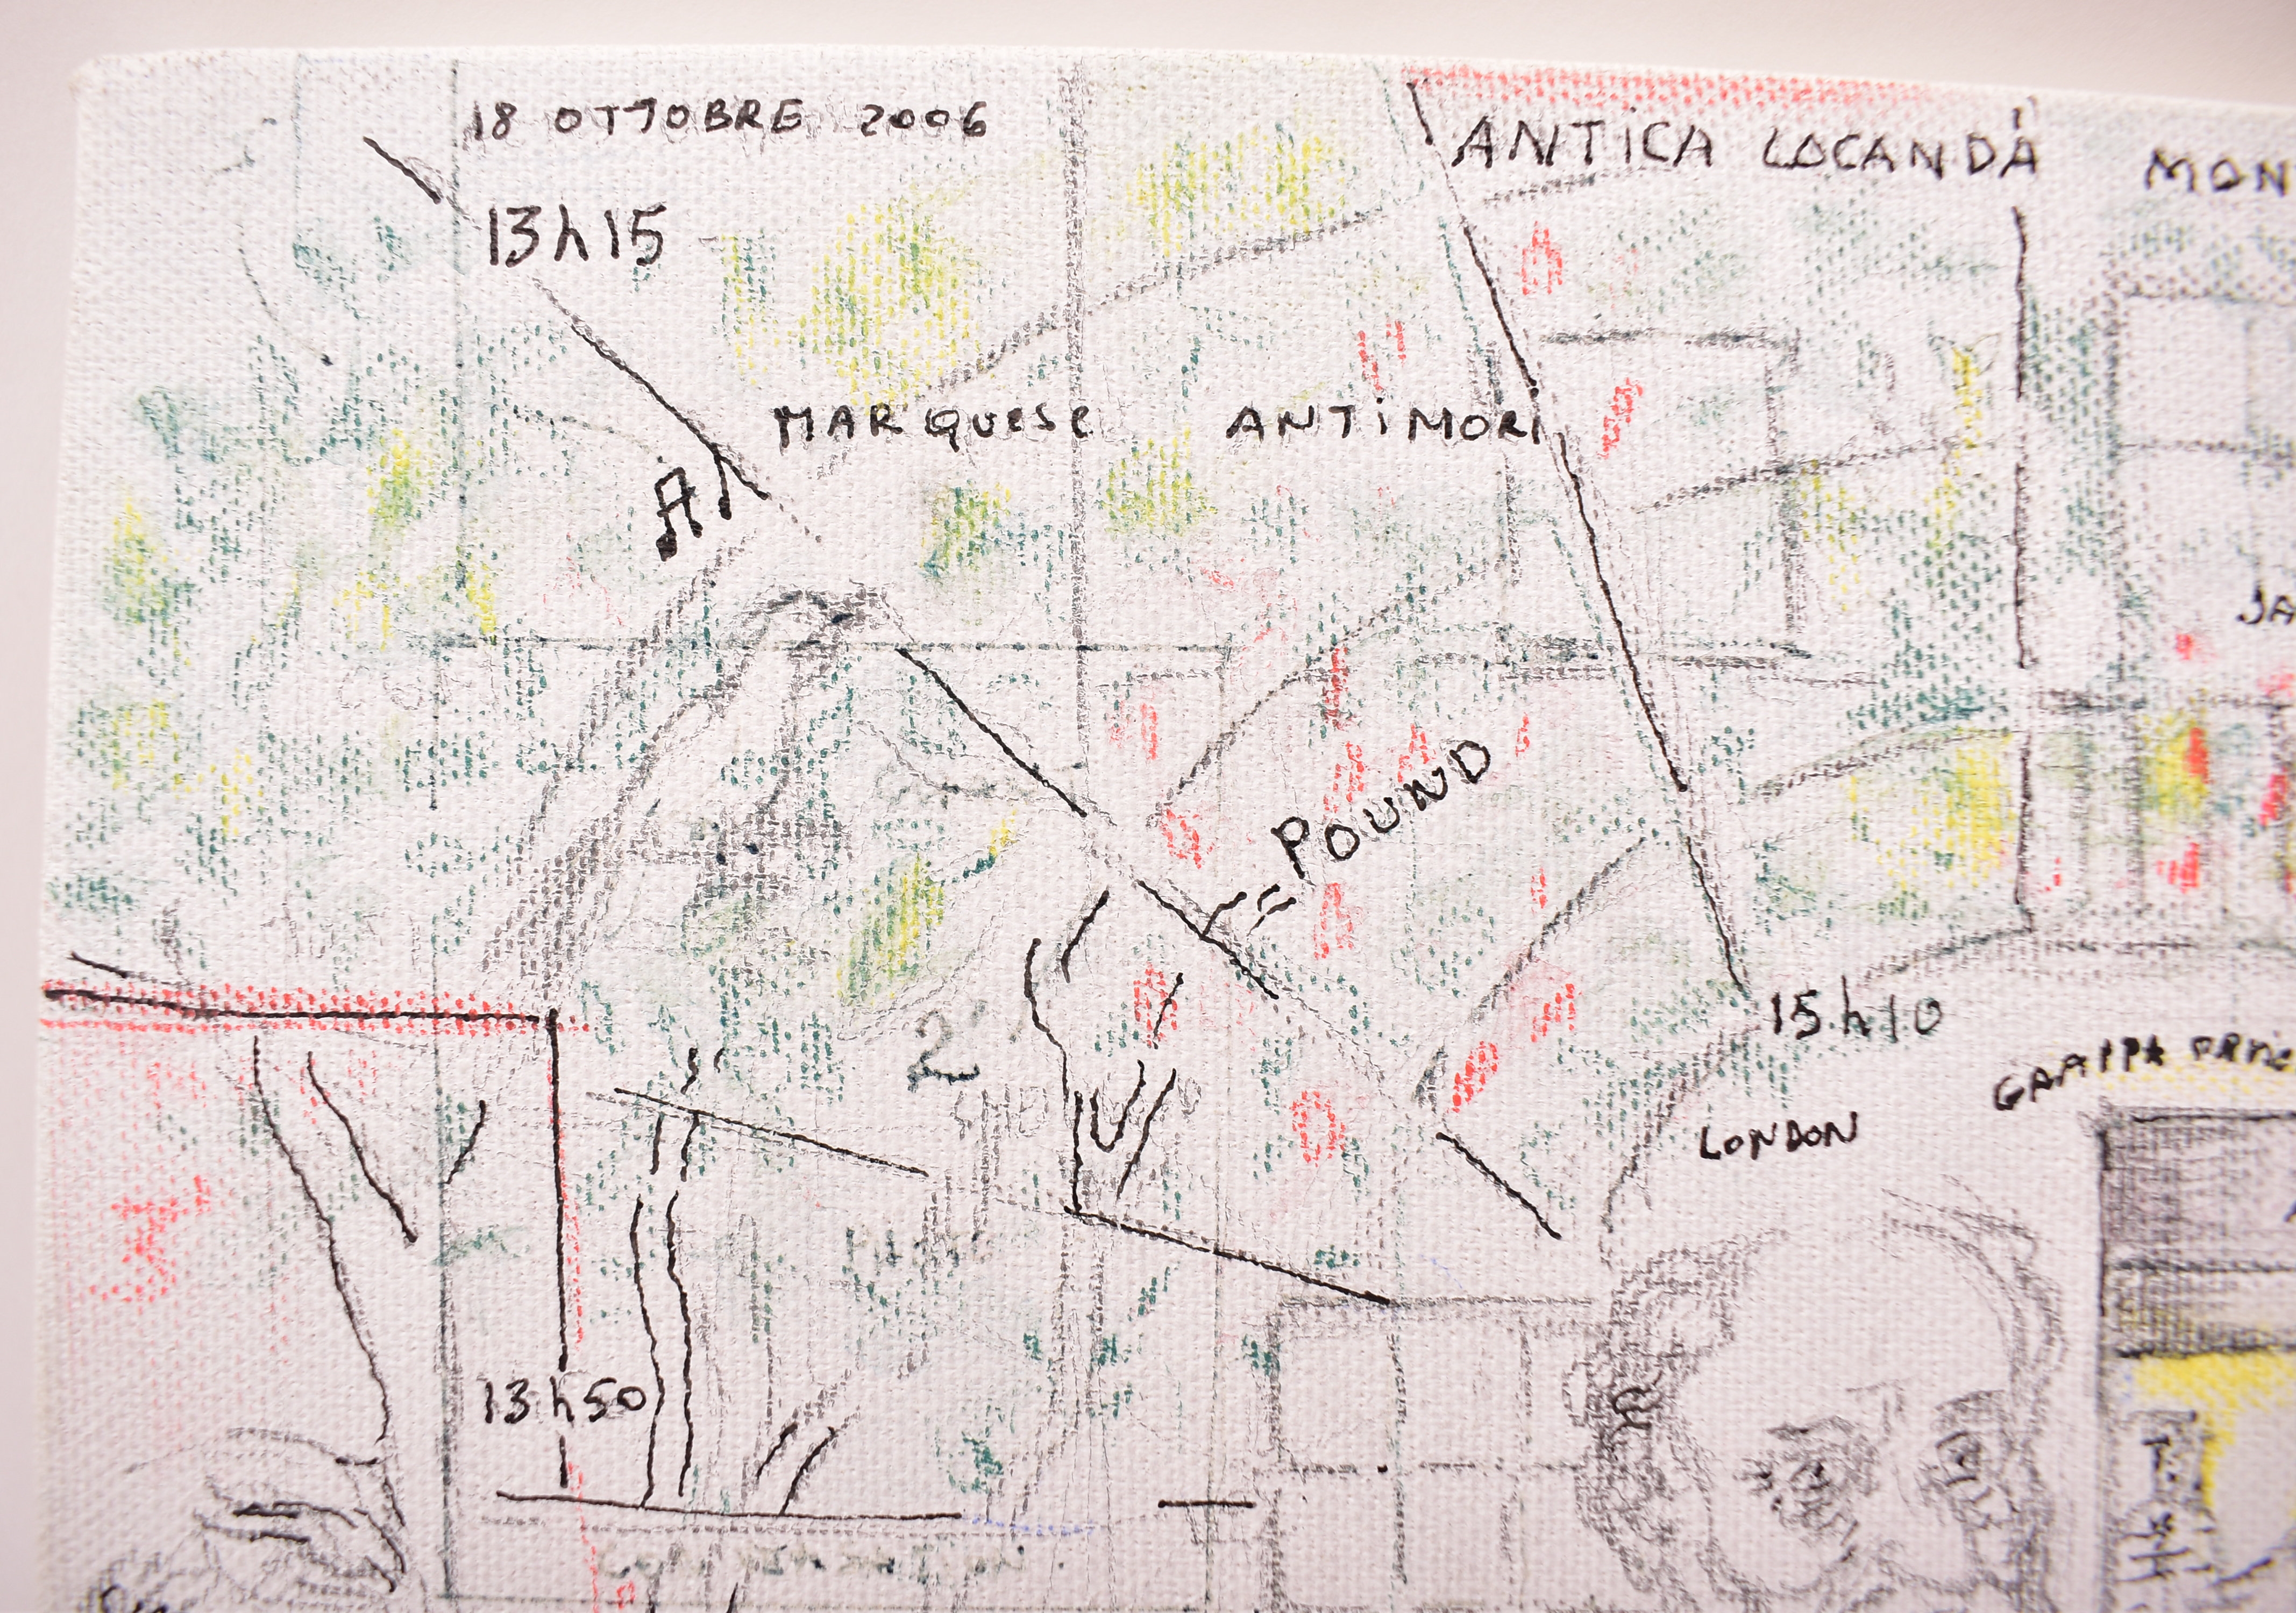 18 OTTOBRE 2006
ANTICA LOCANDA MON
13h15
MARQUESE ANTIMORI
A
JA
= POUND
15h10
2
GRAPPA
LONDON
13h50